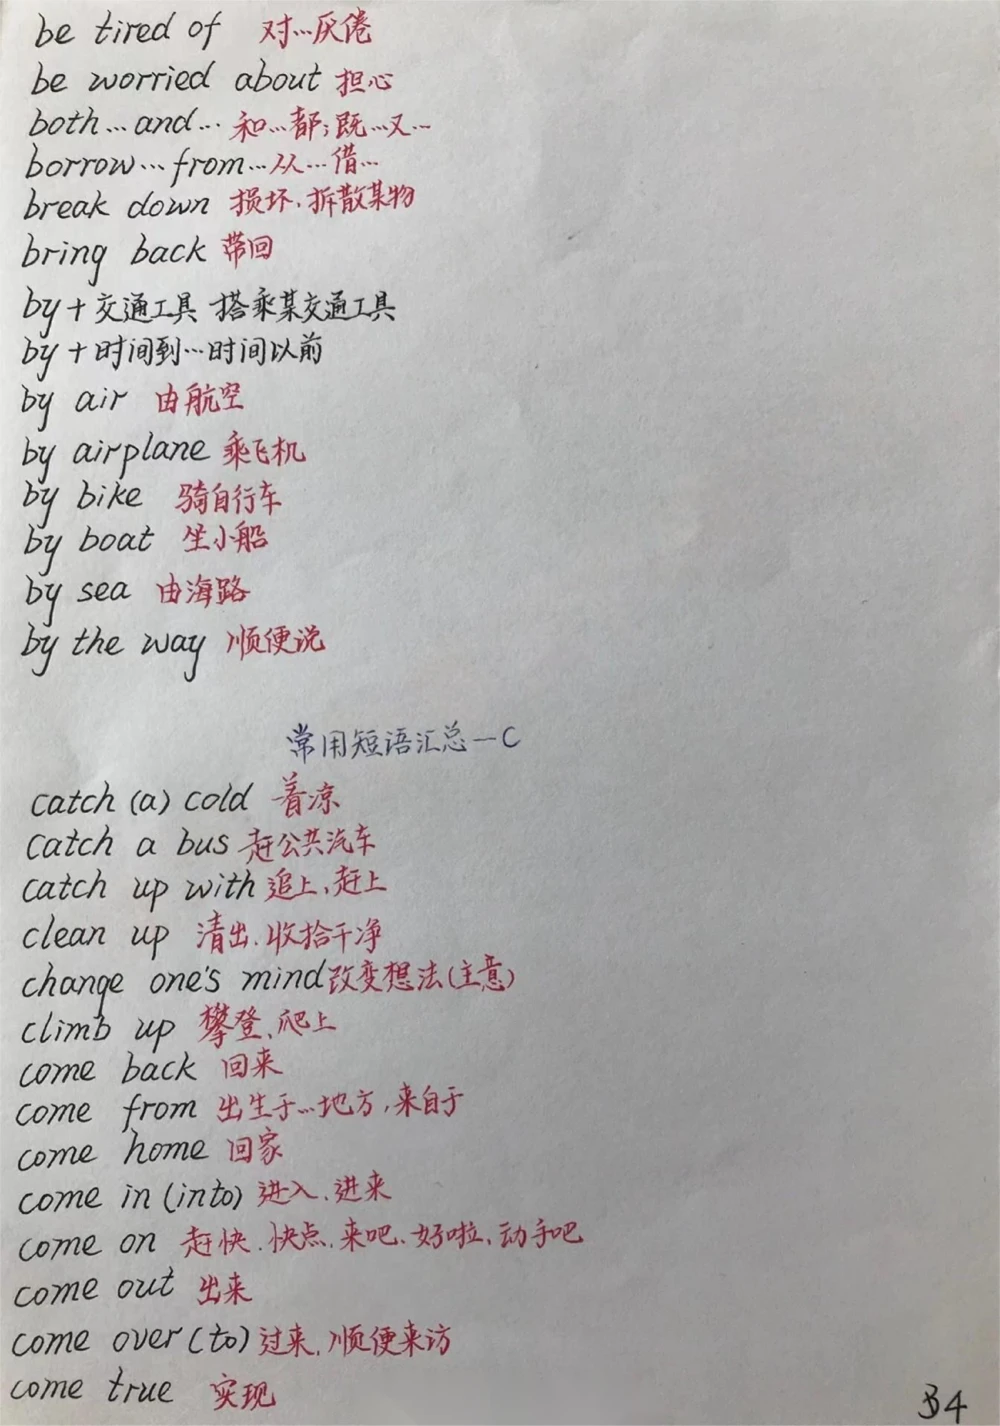 be tired of 对…厌倦
be worried about 担心
both…and… 和…都;既…又…
borrow…from…从…借…
break down 损坏、拆散某物
bring back 带回
by+交通工具 搭乘某交通工具
by+时间到…时间以前
by air 由航空
by airplane 乘飞机
by bike 骑自行车
by boat 坐小船
by sea 由海路
by the way 顺便说
常用短语汇总一C
catch (a) cold 着凉
catch a bus 赶公共汽车
catch up with 追上、赶上
clean up 清出、收拾干净
change one's mind改变想法(主意)
climb up 攀登、爬上
come back 回来
come from 出生于…地方,来自于
come home 回家
come in (into) 进入、进来
come on 赶快、快点、来吧、好啦、动手吧
come out 出来
come over (to) 过来、顺便来访
come true 实现
34